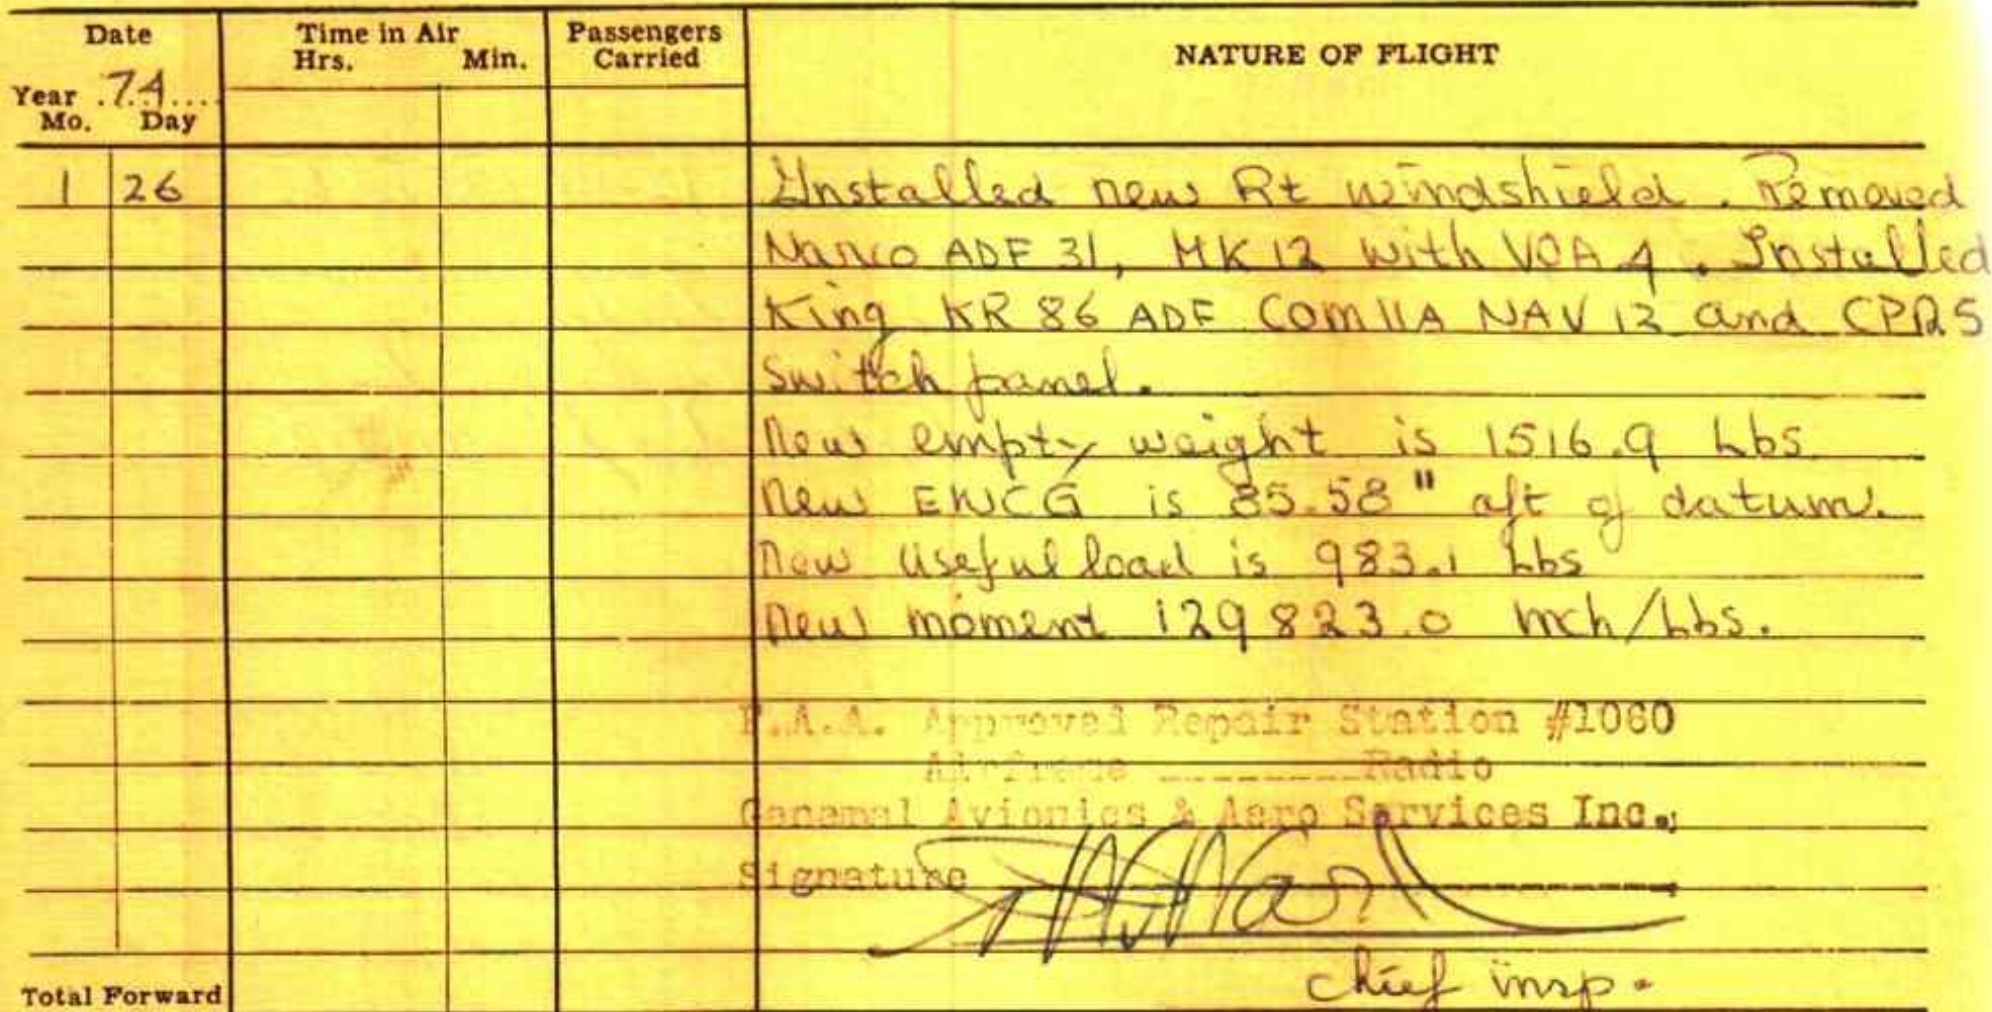 Date
Time in Air
Passengers
Hrs. Min.
Carried
NATURE OF FLIGHT
Year .74....
Mo. Day
1 26 Installed new Rt windshield. Removed
Narco ADF 31, MK 12 with VOA 4. Installed
King KR 86 ADF COM 11A NAV 12 and CPR5
switch panel.
New empty weight is 1516.9 Lbs.
New EWCG is 85.58" aft of datum.
New useful load is 983.1 Lbs
New moment 129823.0 inch/Lbs.
F.A.A. Approved Repair Station #1060
Airframe ________ Radio
General Avionics & Aero Services Inc.
Signature
chief insp.
Total Forward